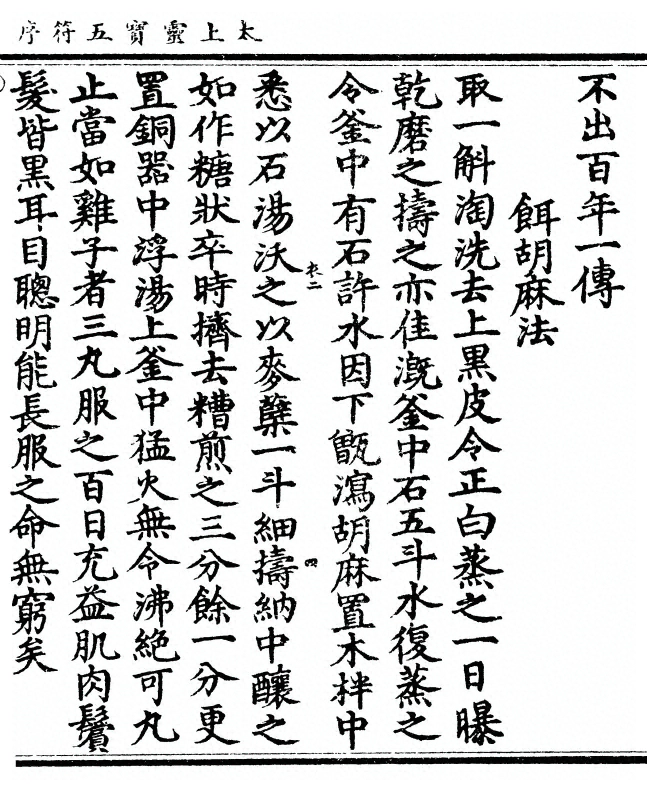 太上靈寶五符序
不出百年一傳
餌胡麻法
取一斛淘洗去上黑皮令正白蒸之一日曝
乾磨之擣之亦佳溉釜中石五斗水復蒸之
令釜中有石許水因下甑瀉胡麻置木柈中
悉以石湯沃之以麥蘖一斗細擣納中釀之
衣二
四
如作糖狀卒時擠去糟煎之三分餘一分更
置銅器中浮湯上釜中猛火無令沸絕可丸
止當如雞子者三丸服之百日充益肌肉鬢
髮皆黑耳目聰明能長服之命無窮矣